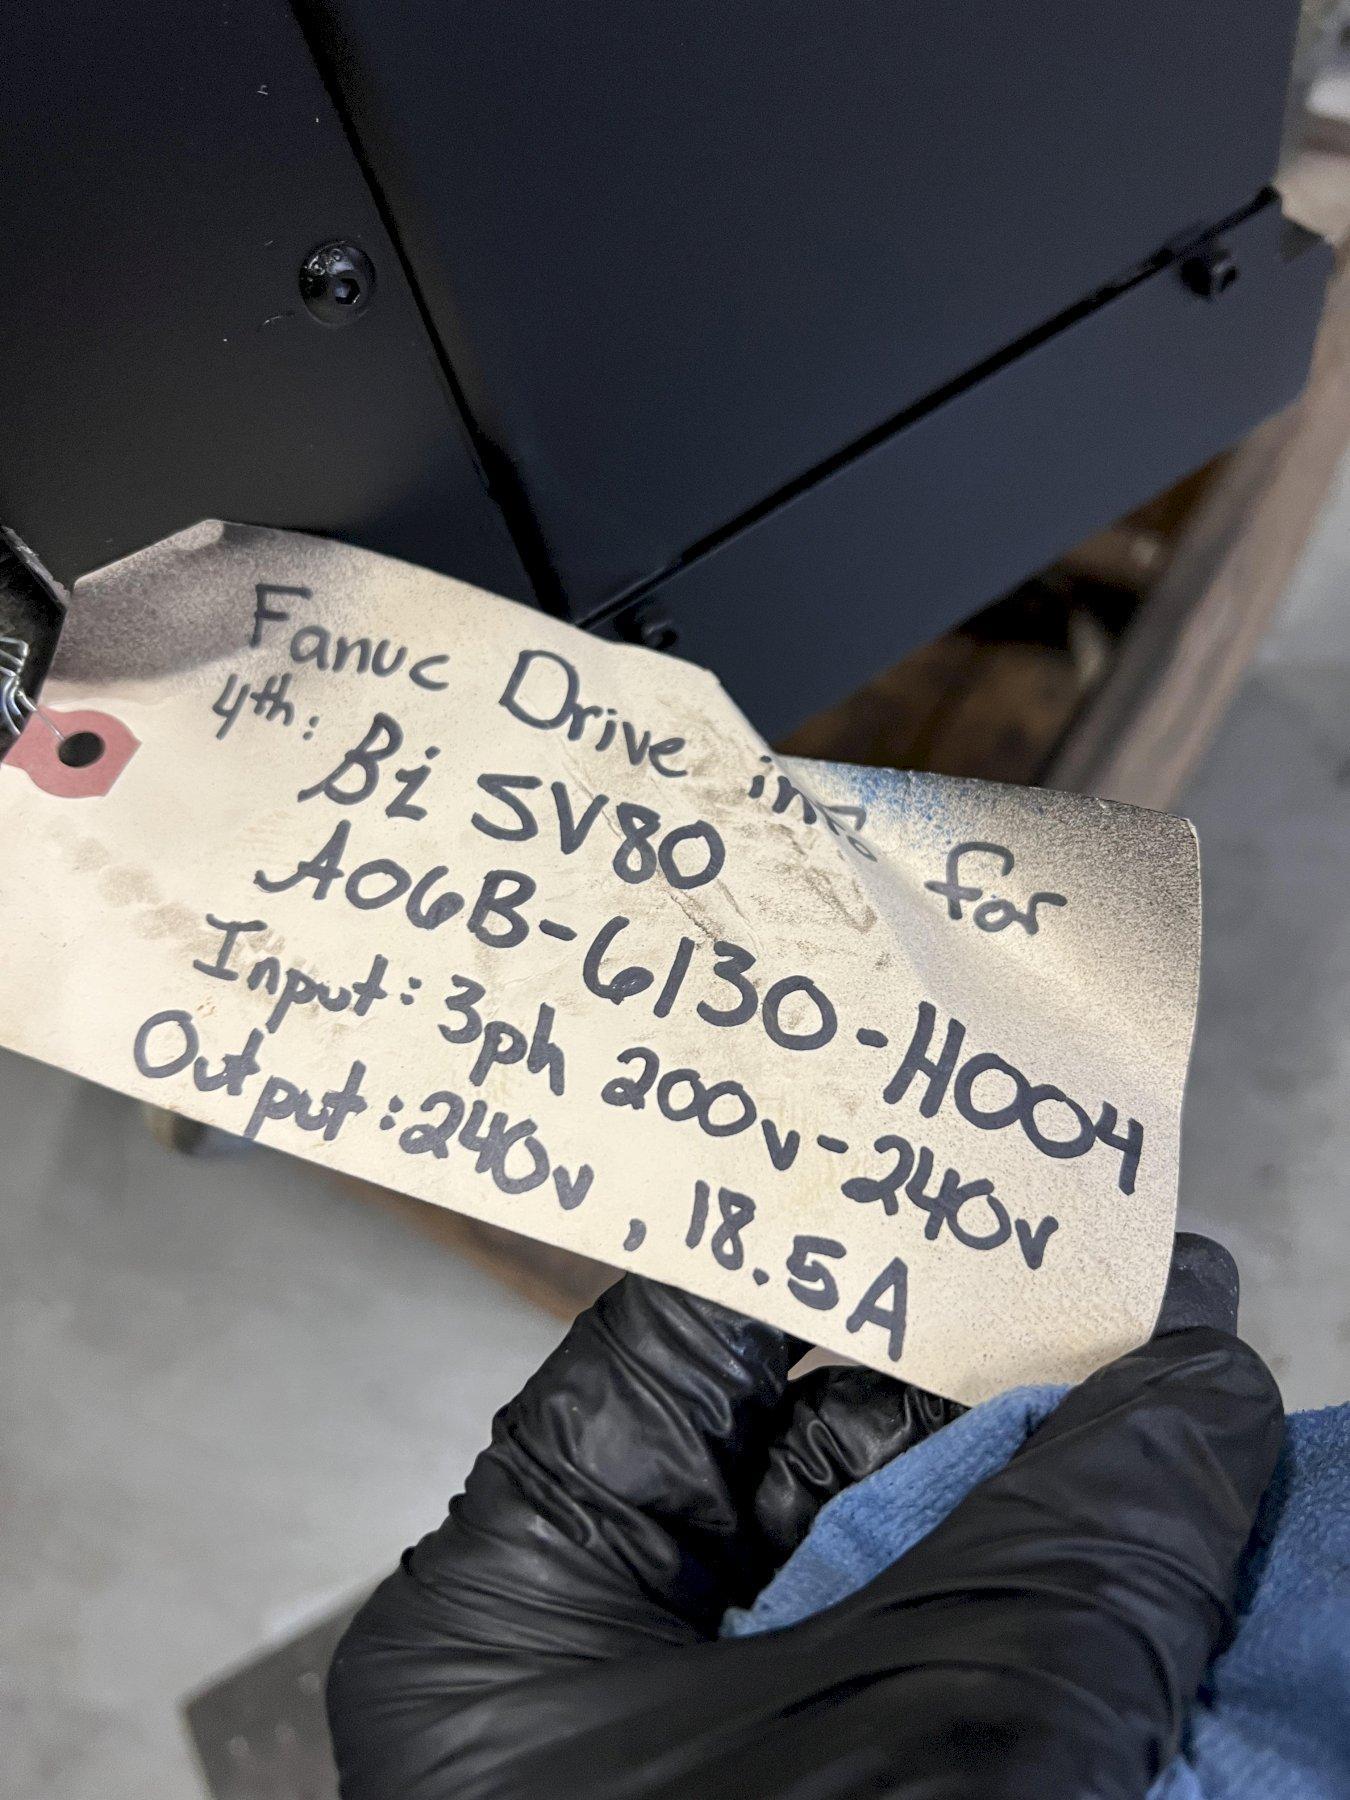 Fanuc Drive info for
4th: Bi SV80
A06B-6130-H004
Input: 3ph 200v-240v
Output: 240v, 18.5A